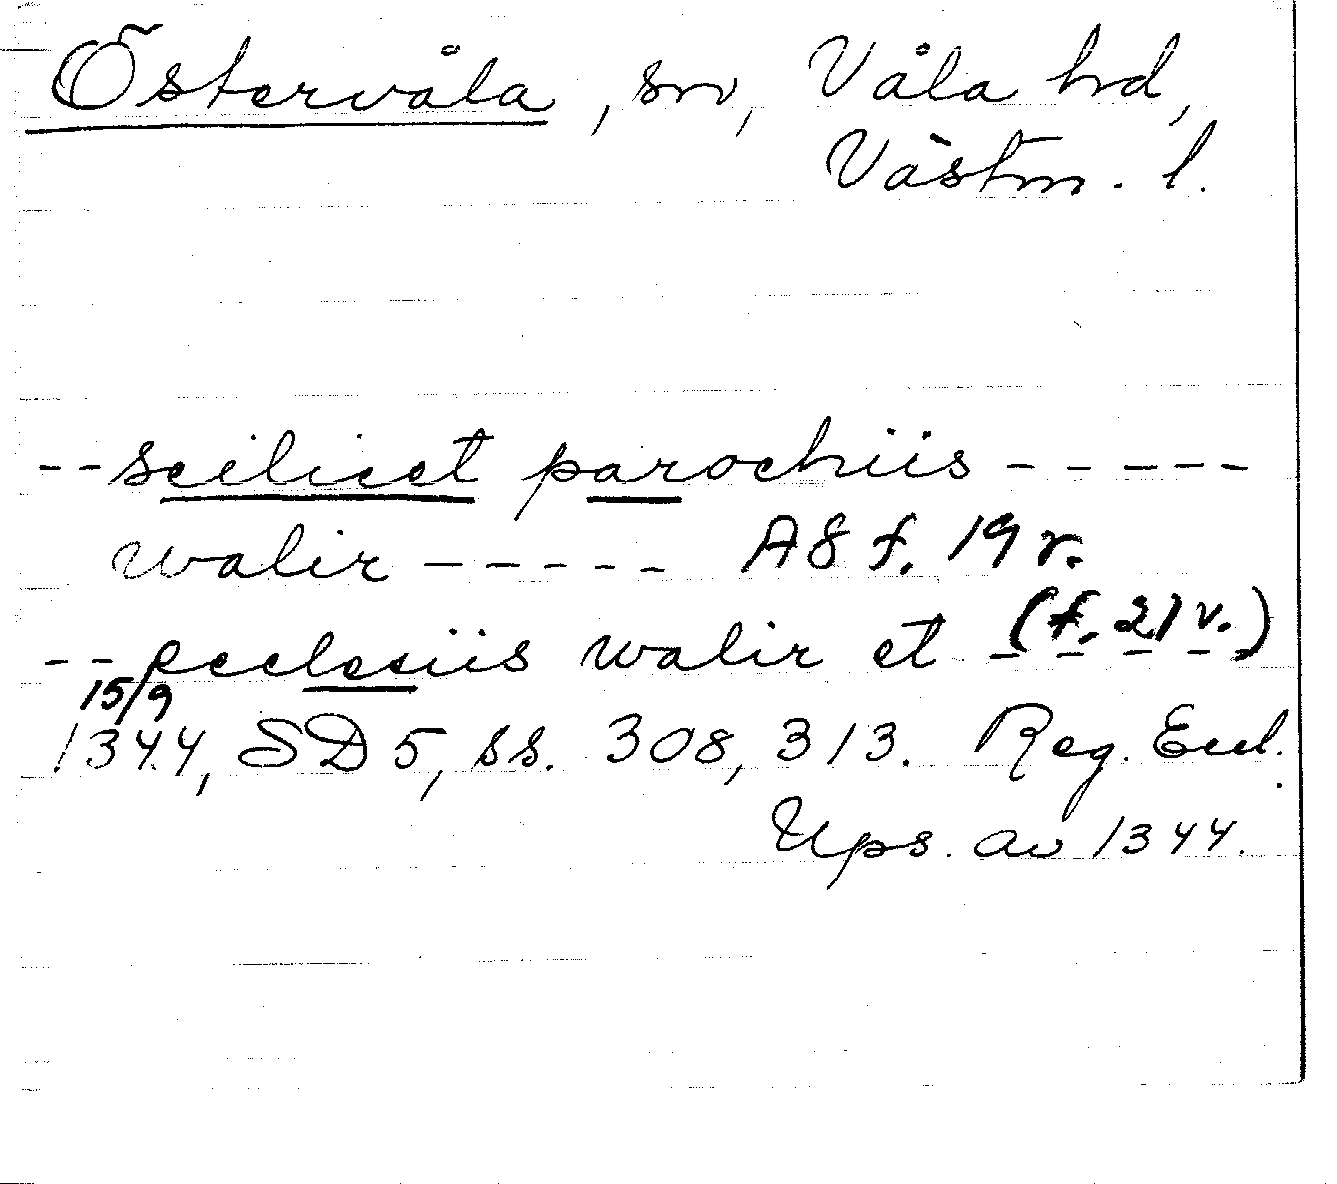 Östervåla, sn, Våla hd,
Västm. l.
-- scilicet parochiis -----
walir ----- A8 f. 19 r.
(f. 21 v.)
-- ecclesiis walir et -----
15/9
1344, SD 5, ss. 308, 313. Reg. Eccl.
Ups. av 1344.